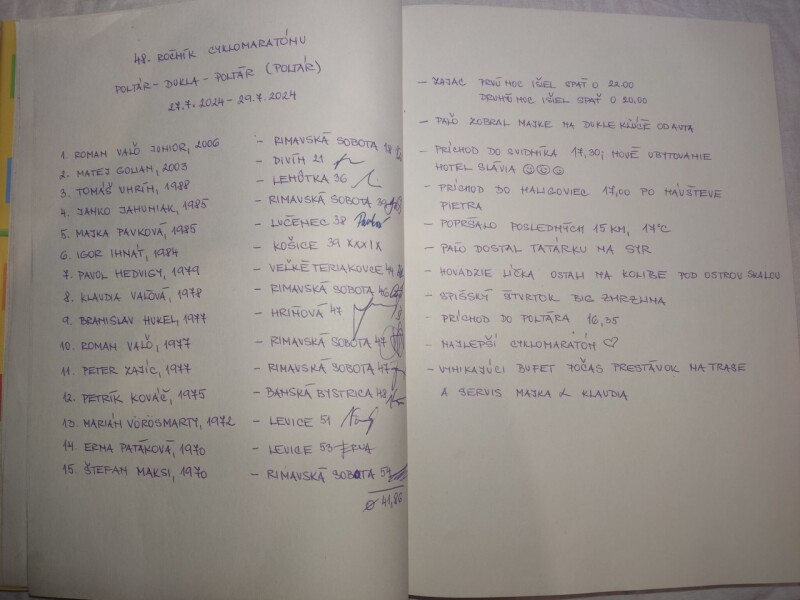 48. ROČNÍK CYKLOMARATÓNU
POLTÁR - DUKLA - POLTÁR (POLTÁR)
27.7.2024 - 29.7.2024
1. ROMAN VALO JUNIOR, 2006 - RIMAVSKÁ SOBOTA 18
2. MATEJ GOLIAN, 2003 - DIVÍN 21
3. TOMÁŠ UHRÍN, 1988 - LEHÔTKA 36
4. JANKO JAHUNIAK, 1985 - RIMAVSKÁ SOBOTA 39
5. MAJKA PAVKOVÁ, 1985 - LUČENEC 38
6. IGOR IHNÁT, 1984 - KOŠICE 39 XXXIX
7. PAVOL HEDVIGY, 1979 - VEĽKÉ TERIAKOVCE 44
8. KLAUDIA VAĽOVÁ, 1978 - RIMAVSKÁ SOBOTA 46
9. BRANISLAV HUKEL, 1977 - HRIŇOVÁ 47
10. ROMAN VALO, 1977 - RIMAVSKÁ SOBOTA 47
11. PETER ZAJÍC, 1977 - RIMAVSKÁ SOBOTA 47
12. PETRÍK KOVÁČ, 1975 - BANSKÁ BYSTRICA 48
13. MARIÁN VÖRÖSMARTY, 1972 - LEVICE 51
14. ERNA PATÁKOVÁ, 1970 - LEVICE 53 ERNA
15. ŠTEFAN MAKSI, 1970 - RIMAVSKÁ SOBOTA 54
Ø 41,86
- ZAJAC PRVÚ NOC IŠIEL SPAŤ O 22.00
DRUHÚ NOC IŠIEL SPAŤ O 20,00
- PAĽO ZOBRAL MAJKE NA DUKLE KĽÚČE OD AUTA
- PRÍCHOD DO SVIDNÍKA 17,30; NOVÉ UBYTOVANIE
HOTEL SLÁVIA ☺☺☺
- PRÍCHOD DO HALIGOVIEC 17,00 PO NÁVŠTEVE
PIETRA
- POPRŠALO POSLEDNÝCH 15 KM, 17°C
- PAĽO DOSTAL TATÁRKU NA SYR
- HOVÄDZIE LÍČKA OSTALI NA KOLIBE POD OSTROU SKALOU
- SPIŠSKÝ ŠTVRTOK BIG ZMRZLINA
- PRÍCHOD DO POLTÁRA 16,35
- NAJLEPŠÍ CYKLOMARATÓN ♡
- VYNIKAJÚCI BUFET POČAS PRESTÁVOK NA TRASE
A SERVIS MAJKA & KLAUDIA